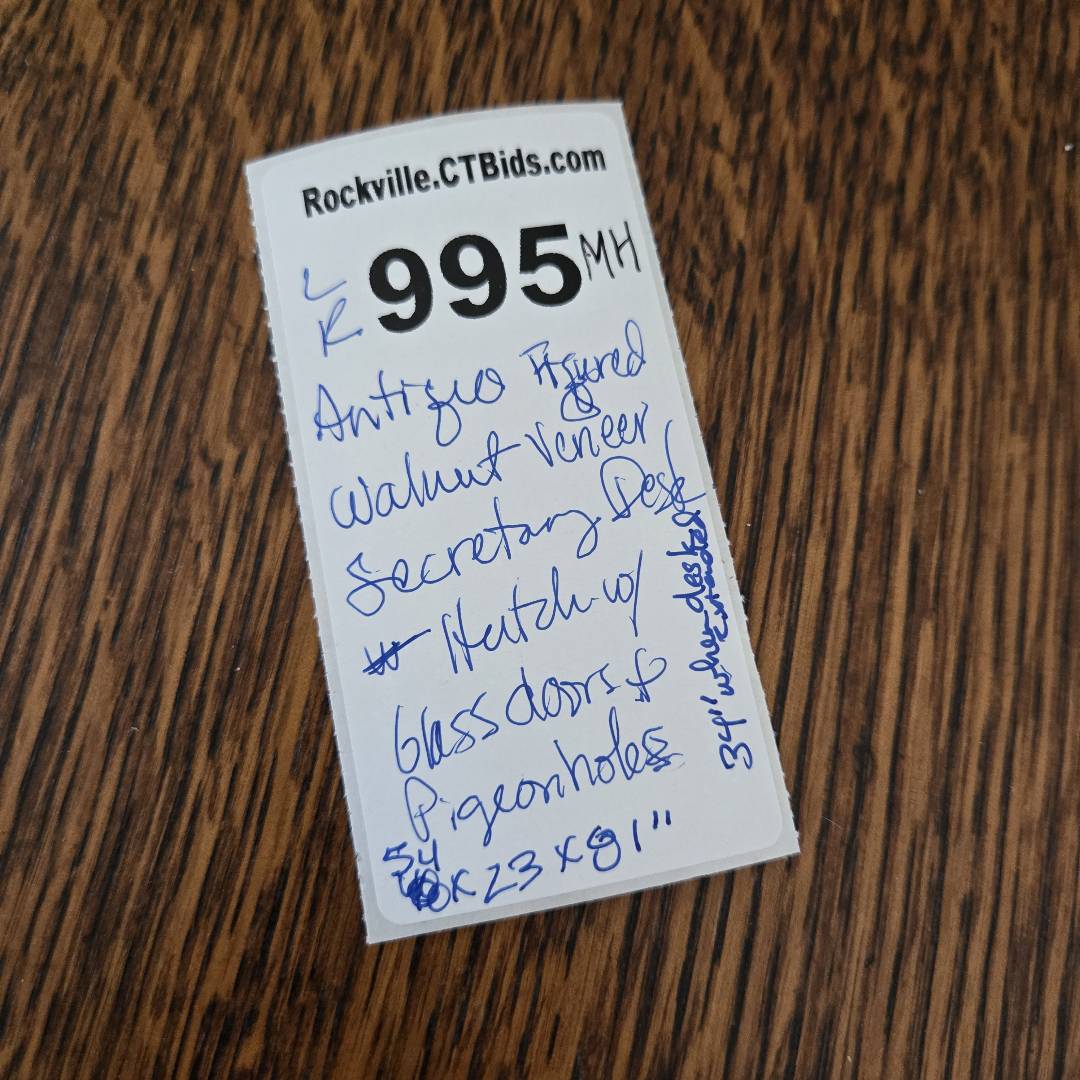 Rockville.CTBids.com
LR 995 MH
Antique Figured
Walnut Veneer
Secretary Desk
Hutch w/
Glass doors &
Pigeonholes
54 x 23 x 81"
34" when desk
extended